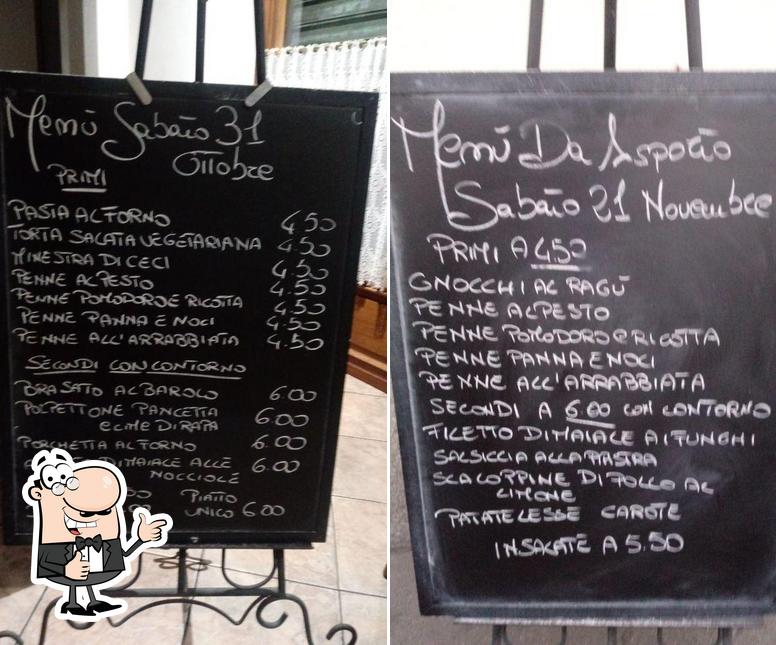 Menù Sabato 31
Ottobre
PRIMI
PASTA AL FORNO 4.50
TORTA SALATA VEGETARIANA 4.50
MINESTRA DI CECI 4.50
PENNE AL PESTO 4.50
PENNE POMODORO E RICOTTA 4.50
PENNE PANNA E NOCI 4.50
PENNE ALL'ARRABBIATA 4.50
SECONDI CON CONTORNO
BRASATO AL BAROLO 6.00
POLPETTONE PANCETTA
E CIME DI RAPA 6.00
PORCHETTA AL FORNO 6.00
DI MAIALE ALLE 6.00
NOCCIOLE
PIATTO
UNICO 6.00
Menù Da Asporto
Sabato 21 Novembre
PRIMI A 4.50
GNOCCHI AL RAGÙ
PENNE AL PESTO
PENNE POMODORO E RICOTTA
PENNE PANNA E NOCI
PENNE ALL'ARRABBIATA
SECONDI A 6.00 CON CONTORNO
FILETTO DI MAIALE AI FUNGHI
SALSICCIA ALLA PIASTRA
SCALOPPINE DI POLLO AL
LIMONE
PATATE LESSE CAROTE
INSALATE A 5.50